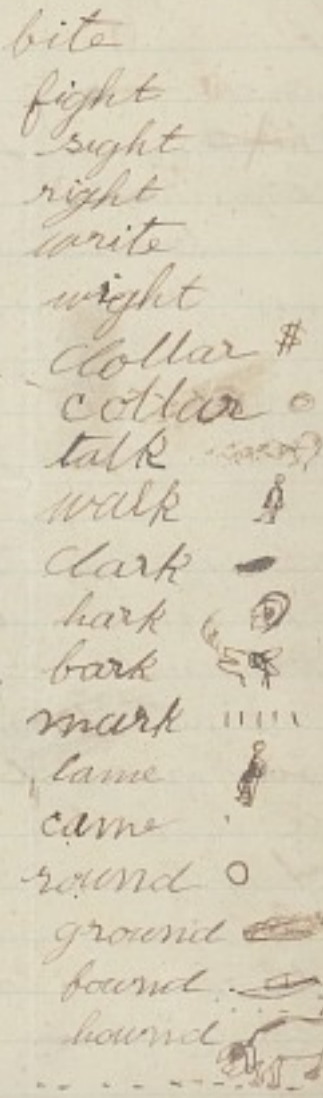 bite
fight
sight
right
write
wight
dollar $
collar
talk
walk
dark
hark
bark
mark
lame
came
round
ground
found
hound